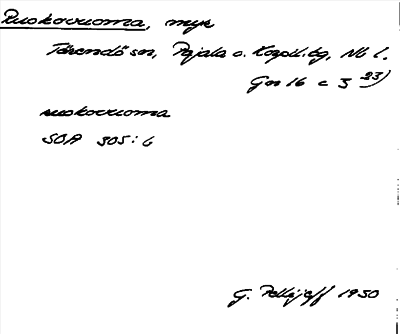 Ruokovuoma, myr
Tärendö sn, Pajala o. Korpil. tg, Nb l.
Gsr 16 c 3 23)
ruokovuoma
SOA 305:6
G. Pellijeff 1950